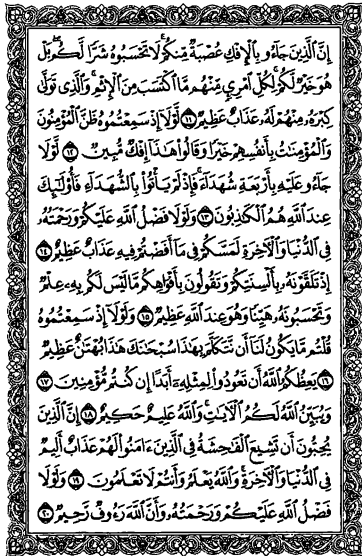 إِنَّ ٱلَّذِينَ جَآءُو بِٱلْإِفْكِ عُصْبَةٌ مِّنكُمْ لَا تَحْسَبُوهُ شَرًّا لَّكُم بَلْ
هُوَ خَيْرٌ لَّكُمْ لِكُلِّ ٱمْرِئٍ مِّنْهُم مَّا ٱكْتَسَبَ مِنَ ٱلْإِثْمِ وَٱلَّذِى تَوَلَّىٰ
كِبْرَهُۥ مِنْهُمْ لَهُۥ عَذَابٌ عَظِيمٌ ١١ لَّوْلَآ إِذْ سَمِعْتُمُوهُ ظَنَّ ٱلْمُؤْمِنُونَ
وَٱلْمُؤْمِنَٰتُ بِأَنفُسِهِمْ خَيْرًا وَقَالُوا۟ هَٰذَآ إِفْكٌ مُّبِينٌ ١٢ لَّوْلَا
جَآءُو عَلَيْهِ بِأَرْبَعَةِ شُهَدَآءَ فَإِذْ لَمْ يَأْتُوا۟ بِٱلشُّهَدَآءِ فَأُو۟لَٰٓئِكَ
عِندَ ٱللَّهِ هُمُ ٱلْكَٰذِبُونَ ١٣ وَلَوْلَا فَضْلُ ٱللَّهِ عَلَيْكُمْ وَرَحْمَتُهُۥ
فِى ٱلدُّنْيَا وَٱلْءَاخِرَةِ لَمَسَّكُمْ فِى مَآ أَفَضْتُمْ فِيهِ عَذَابٌ عَظِيمٌ ١٤
إِذْ تَلَقَّوْنَهُۥ بِأَلْسِنَتِكُمْ وَتَقُولُونَ بِأَفْوَاهِكُم مَّا لَيْسَ لَكُم بِهِۦ عِلْمٌ
وَتَحْسَبُونَهُۥ هَيِّنًا وَهُوَ عِندَ ٱللَّهِ عَظِيمٌ ١٥ وَلَوْلَآ إِذْ سَمِعْتُمُوهُ
قُلْتُم مَّا يَكُونُ لَنَآ أَن نَّتَكَلَّمَ بِهَٰذَا سُبْحَٰنَكَ هَٰذَا بُهْتَٰنٌ عَظِيمٌ
١٦ يَعِظُكُمُ ٱللَّهُ أَن تَعُودُوا۟ لِمِثْلِهِۦٓ أَبَدًا إِن كُنتُم مُّؤْمِنِينَ ١٧
وَيُبَيِّنُ ٱللَّهُ لَكُمُ ٱلْءَايَٰتِ وَٱللَّهُ عَلِيمٌ حَكِيمٌ ١٨ إِنَّ ٱلَّذِينَ
يُحِبُّونَ أَن تَشِيعَ ٱلْفَٰحِشَةُ فِى ٱلَّذِينَ ءَامَنُوا۟ لَهُمْ عَذَابٌ أَلِيمٌ
فِى ٱلدُّنْيَا وَٱلْءَاخِرَةِ وَٱللَّهُ يَعْلَمُ وَأَنتُمْ لَا تَعْلَمُونَ ١٩ وَلَوْلَا
فَضْلُ ٱللَّهِ عَلَيْكُمْ وَرَحْمَتُهُۥ وَأَنَّ ٱللَّهَ رَءُوفٌ رَّحِيمٌ ٢٠